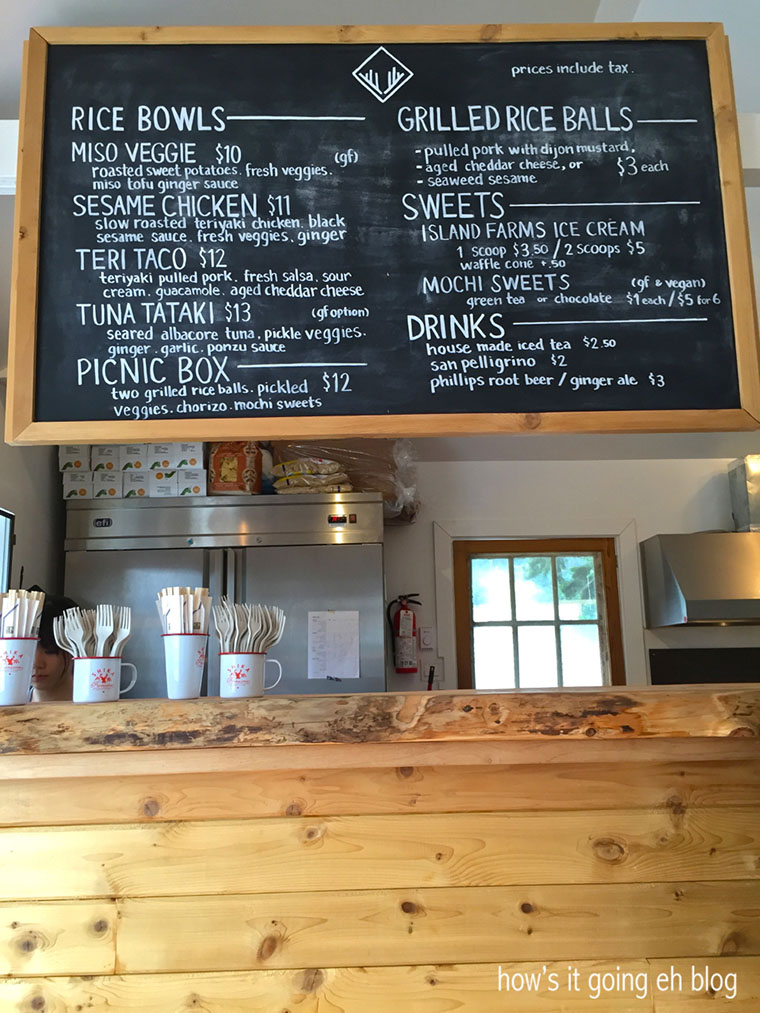 prices include tax.
RICE BOWLS
MISO VEGGIE $10 (gf)
roasted sweet potatoes. fresh veggies.
miso tofu ginger sauce
SESAME CHICKEN $11
slow roasted teriyaki chicken. black
sesame sauce. fresh veggies. ginger
TERI TACO $12
teriyaki pulled pork. fresh salsa. sour
cream. guacamole. aged cheddar cheese
TUNA TATAKI $13 (gf option)
seared albacore tuna. pickle veggies.
ginger. garlic. ponzu sauce
PICNIC BOX
two grilled rice balls. pickled $12
veggies. chorizo. mochi sweets
GRILLED RICE BALLS
- pulled pork with dijon mustard,
- aged cheddar cheese, or $3 each
- seaweed sesame
SWEETS
ISLAND FARMS ICE CREAM
1 scoop $3.50 / 2 scoops $5
waffle cone +.50
MOCHI SWEETS (gf & vegan)
green tea or chocolate $1 each / $5 for 6
DRINKS
house made iced tea $2.50
san pelligrino $2
phillips root beer / ginger ale $3
efi
SHIKA
how's it going eh blog